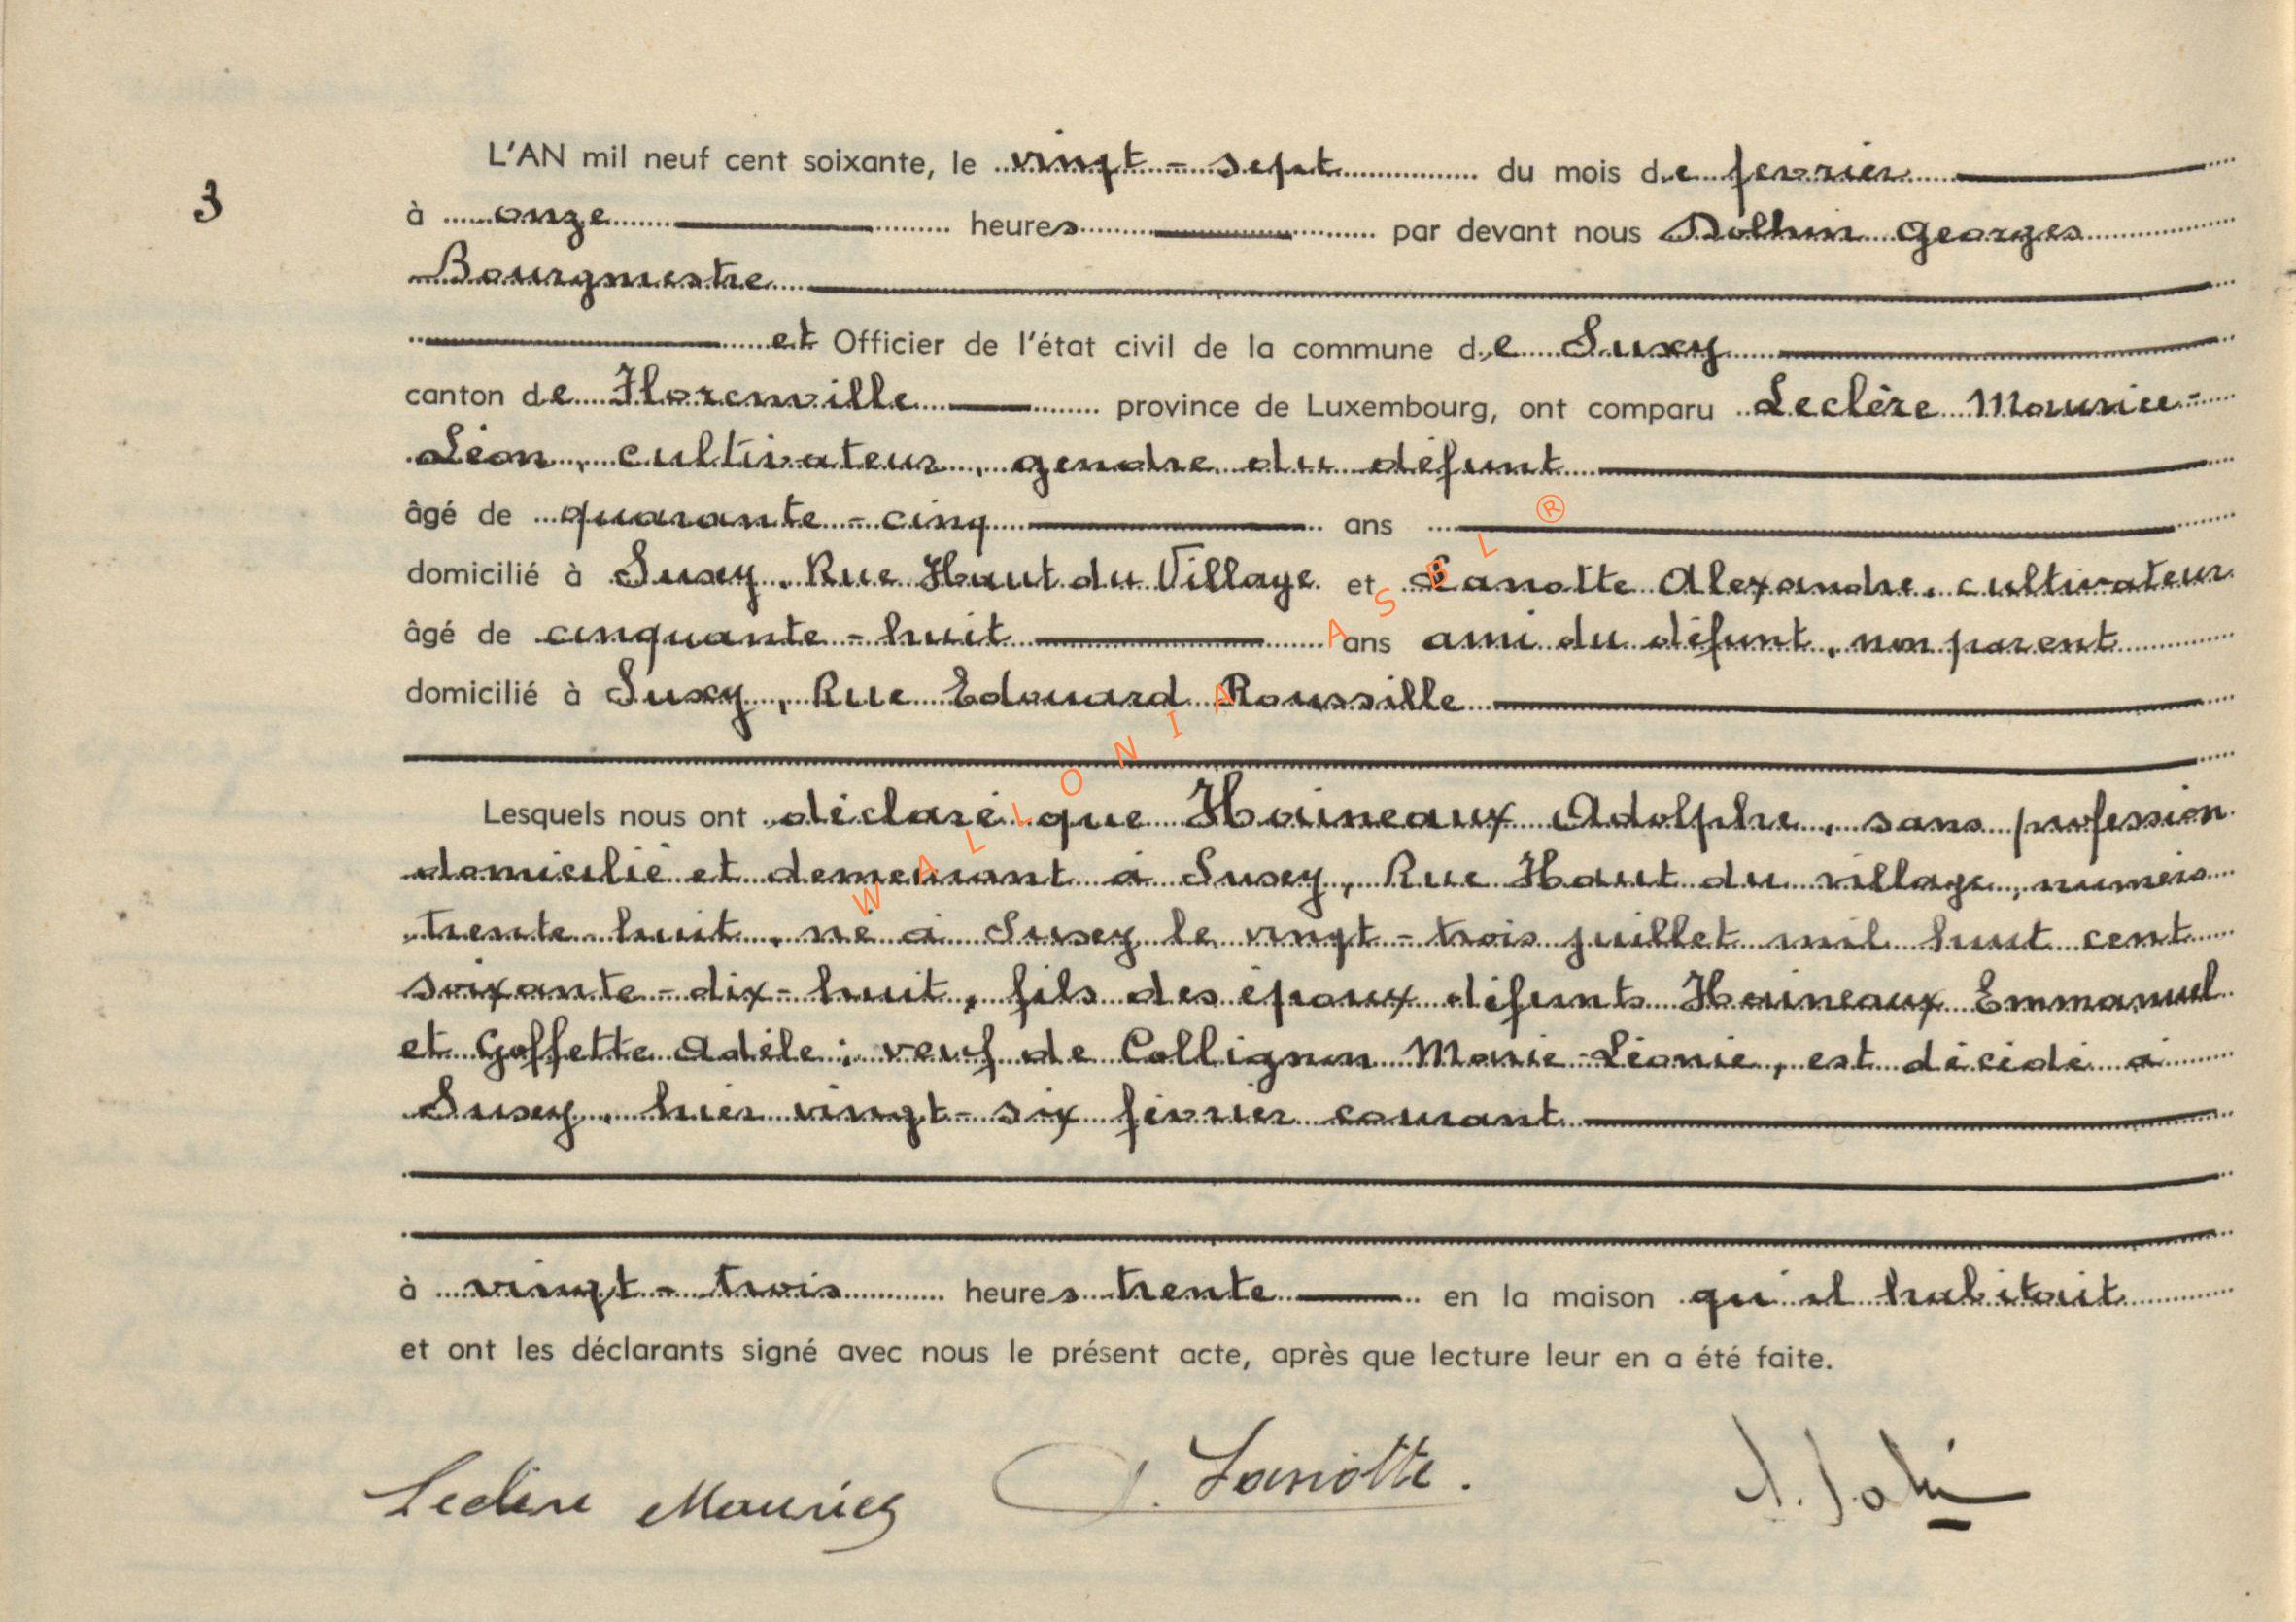 L'AN mil neuf cent soixante, le vingt-sept du mois de fevrier
3
à onze heures par devant nous Dolhin Georges
Bourgmestre
et Officier de l'état civil de la commune de Suxy
canton de Florenville province de Luxembourg, ont comparu Leclère Maurice-
Léon, cultivateur, gendre du défunt
âgé de quarante-cinq ans
domicilié à Suxy, Rue Haut du Village et Lanotte Alexandre, cultivateur
âgé de cinquante-huit ans ami du défunt, non parent
domicilié à Suxy, Rue Edouard Roussille
Lesquels nous ont déclaré que Haineaux Adolphe, sans profession
domicilié et demeurant à Suxy, Rue Haut du village, numéro
trente huit, né à Suxy le vingt-trois juillet mil huit cent
soixante-dix-huit, fils des époux défunts Haineaux Emmanuel
et Goffette Adèle; veuf de Collignon Marie-Léonie, est décédé à
Suxy, hier vingt-six février courant
à vingt-trois heures trente en la maison qu'il habitait
et ont les déclarants signé avec nous le présent acte, après que lecture leur en a été faite.
Leclère Maurice A. Lanotte.
WALLONIA ASBL ®